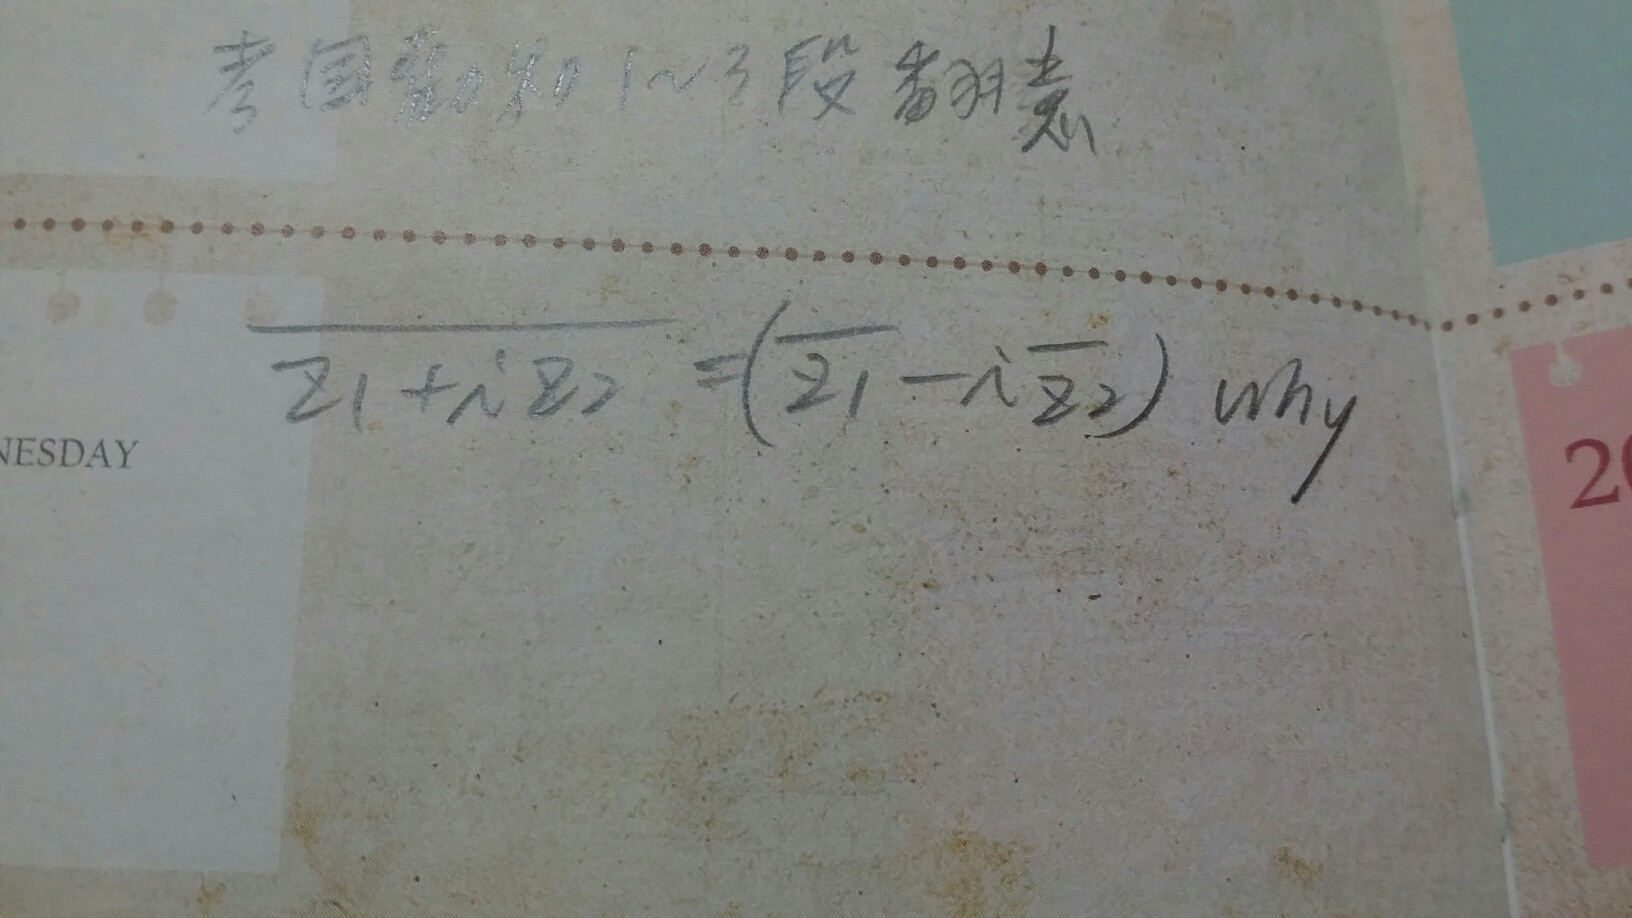 考國勸和1~3段翻意
\overline{z_1+iz_2}=(\overline{z_1}-i\overline{z_2}) why
NESDAY
20